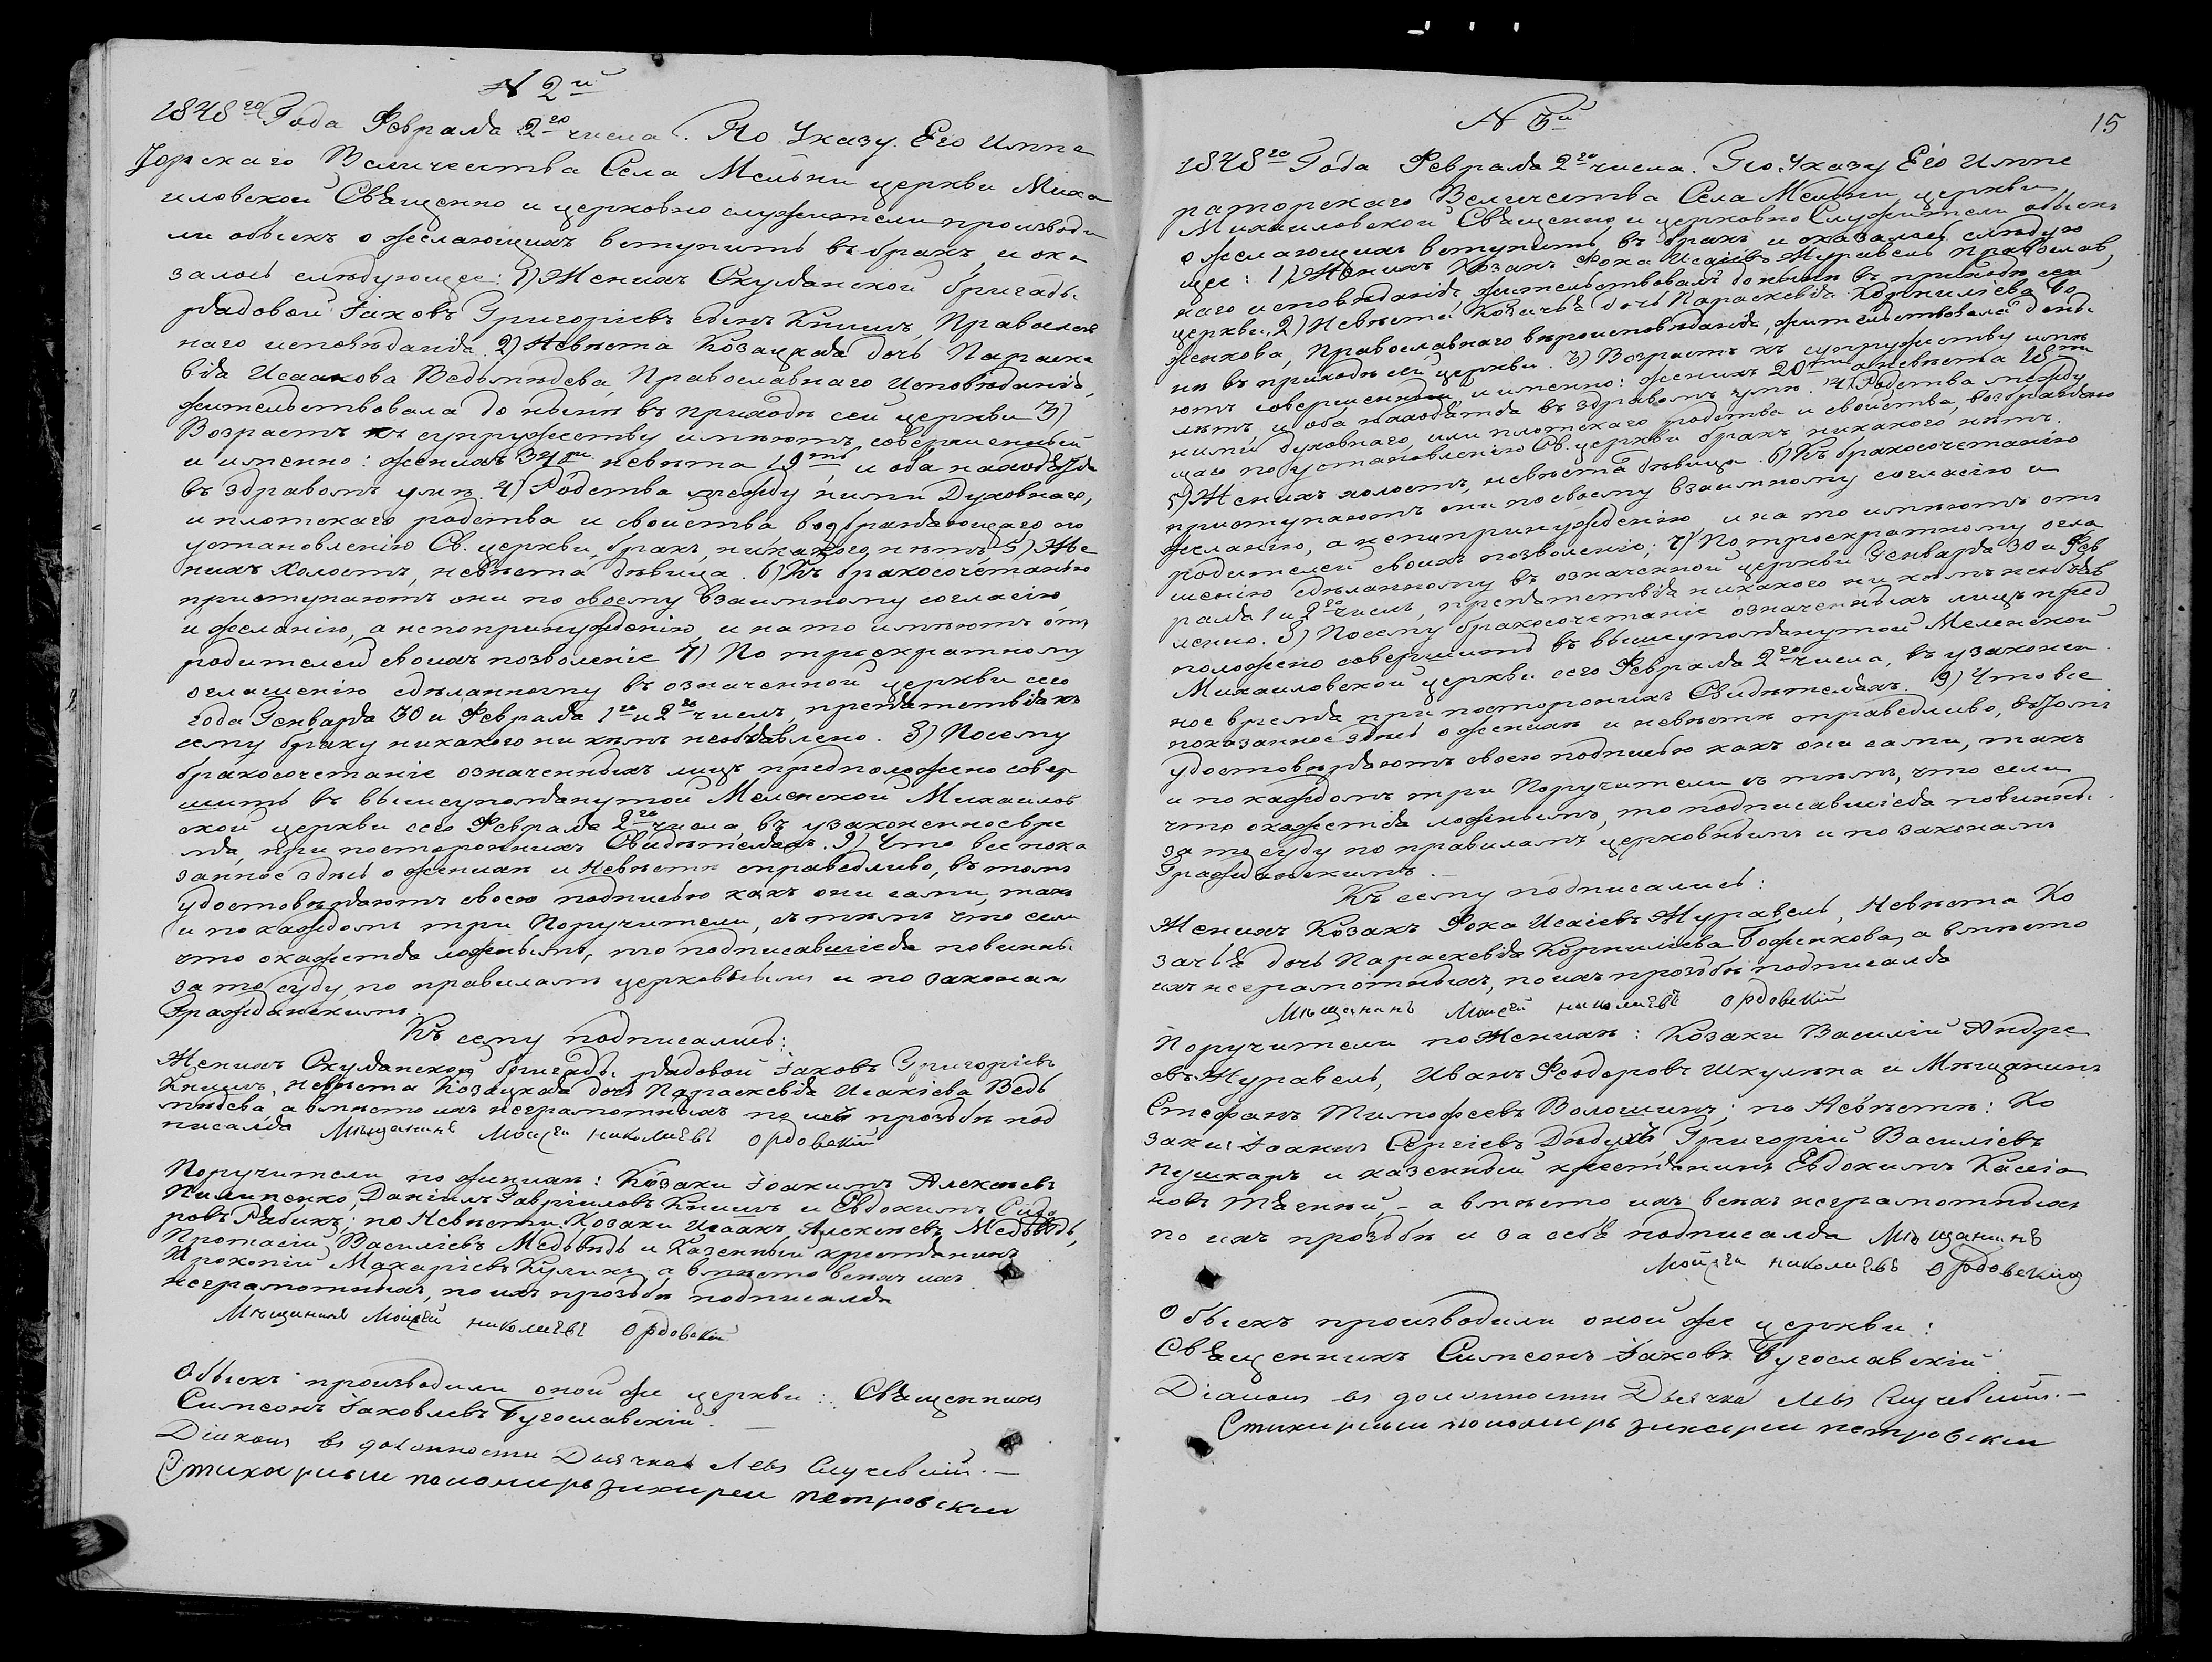 N 2й
1848го Года Февраля 2го числа. По Указу Его Импе
раторскаго Величества Села Мельни церкви Миха
иловской Священно и церковно служители производи
ли обыскъ о желающихъ вступить въ бракъ, и ока
залось слѣдующее: 1) Женихъ бригады
рядовой Іаковъ Григоріевъ сынъ Книшъ, Православ
наго исповѣданія. 2) Невѣста Козацкая дочь Параске
вія Исаакова Ведьмѣдева, Православнаго Исповѣданія,
жительствовала до нынѣ въ приходѣ сей церкви 3)
Возрастъ къ супружеству имѣютъ совершенный
и именно: женихъ невѣста и оба находятся
въ здравомъ умѣ. 4) Родства между ними Духовнаго,
и плотскаго родства и свойства возбраняющаго по
установленію Св. церкви, бракъ, никакого нѣтъ 5) Же
нихъ Холостъ, невѣста дѣвица. 6) Къ бракосочетанію
приступаютъ они по своему взаимному согласію,
и желанію, а непопринужденію, и на то имѣютъ отъ
родителей своихъ позволеніе 7) По троекратному
оглашенію сдѣланному въ означенной церкви сего
года Генваря 30 и Февраля 1го и 2го числъ, препятствія къ
сему браку никакого ни кѣмъ необъявлено. 8) Посему
бракосочетаніе означенныхъ лицъ предположено совер
шить въ вышеупомянутой Меленской Михайлов
ской церкви сего Февраля 2го числа, въ узаконенное вре
мя, при постороннихъ Свидѣтеляхъ. 9) Что все пока
занное здѣсь о женихѣ и Невѣстѣ справедливо, въ томъ
удостовѣряютъ своею подписью какъ они сами, такъ
и по каждомъ три Поручители, съ тѣмъ что если
что окажется ложнымъ, то подписавшіеся повинны
за то суду, по правиламъ церковнымъ и по законамъ
Гражданскимъ.
Къ сему подписались:
Женихъ бригады рядовой Іаковъ Григоріевъ
Книшъ, невѣста Козацкая дочь Параскевія Исакіева Ведь
мѣдева, а вмѣсто ихъ неграмотныхъ по ихъ прозьбѣ под
писался Мѣщанинъ Моисей николаевъ ордовскій
Поручители по женихѣ: Козаки Іоакимъ Алексѣевъ
Пилипенко, Даніилъ Гавріиловъ Книшъ и Евдокимъ Сидо
ровъ Рябикъ; по Невѣстѣ: Козаки Исаакъ Алексѣевъ Медвѣдь,
Протасій Василіевъ Медвѣдь и Казенный крестьянинъ
Прокопій Макаріевъ Куликъ, а вмѣсто всѣхъ ихъ
неграмотныхъ, по ихъ прозьбѣ подписался
Мѣщанинъ Моисей николаевъ ордовскій
Обыскъ производили оной же церкви: Священникъ
Симеонъ Іаковлевъ Бугославскій.
Діаконъ въ должности Дьячка Левъ
Стихарный пономарь захарей петровскій
N 3й
15
1848го Года Февраля 2го числа. По Указу Его Импе
раторскаго Величества Села Мельни церкви
Михаиловской Священно и церковно Служители обыскъ
о желающихъ вступить въ бракъ и оказалось слѣдую
щее: 1) Женихъ Козакъ Фока Исаіевъ Журавель Православ
наго исповѣданія жительствовалъ до нынѣ въ приходѣ сей
церкви, 2) Невѣста Козачья дочь Параскевія Корниліева Бо
женкова, Православнаго вѣроисповѣданія, жительствовала до ны
нѣ въ приходѣ сей церкви. 3) Возрастъ къ супружеству имѣ
ютъ совершенный, и именно: женихъ 20ти а невѣста 18ти
лѣтъ, и оба находятся въ здравомъ умѣ. 4) Родства между
ними духовнаго, или плотскаго родства и свойства, возбраняю
щаго по установленію Св. церкви бракъ никакого нѣтъ.
5) Женихъ холостъ, невѣста дѣвица. 6) Къ бракосочетанію
приступаютъ они по своему взаимному согласію и
желанію, а непопринужденію и на то имѣютъ отъ
родителей своихъ позволеніе; 7) По троекратному огла
шенію сдѣланному въ означенной церкви Генваря 30 и Фев
раля 1 и 2го числъ, препятствія никакого ни кѣмъ необъяв
лено. 8) Посему бракосочетаніе означенныхъ лицъ пред
положено совершить въ вышеупомянутой Меленской
Михайловской церкви сего Февраля 2го числа, въ узаконен
ное время при постороннихъ Свидѣтеляхъ. 9) Что все
показанное здѣсь о женихѣ и невѣстѣ справедливо, въ томъ
удостовѣряютъ своею подписью какъ они сами, такъ
и по каждомъ три Поручители съ тѣмъ, что если
что окажется ложнымъ, то подписавшіеся повинны
за то суду по правиламъ церковнымъ и по законамъ
Гражданскимъ.
Къ сему подписались:
Женихъ Козакъ Фока Исаіевъ Журавель, Невѣста Ко
зачья дочь Параскевія Корниліева Боженкова, а вмѣсто
ихъ неграмотныхъ, по ихъ прозьбѣ подписался
Мѣщанинъ Моисей николаевъ ордовскій
Поручители по Женихѣ: Козаки Василій Андре
евъ Журавель, Иванъ Феодоровъ Шкулѣпа и Мѣщанинъ
Стефанъ Тимофеевъ Волошинъ; по Невѣстѣ: Ко
заки: Іоаннъ Сергіевъ Дядухъ, Григорій Василіевъ
Пушкаръ и казенный крестьянинъ Евдокимъ Касіа
новъ а вмѣсто ихъ всѣхъ неграмотныхъ
по ихъ прозьбѣ и за себя подписался Мѣщанинъ
Моисей николаевъ ордовскій
Обыскъ производили оной же церкви:
Священникъ Симеонъ Іаковъ Бугославскій
Діаконъ въ должности Дьячка Левъ
Стихарный пономарь захарей петровскій